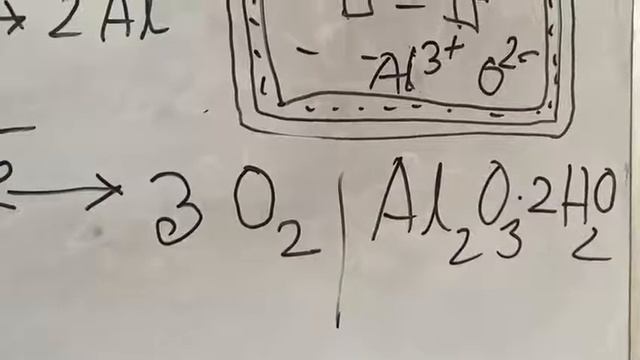 → 2 Al
Al³⁺ O²⁻
→ 3 O₂ | Al₂O₃·2H₂O